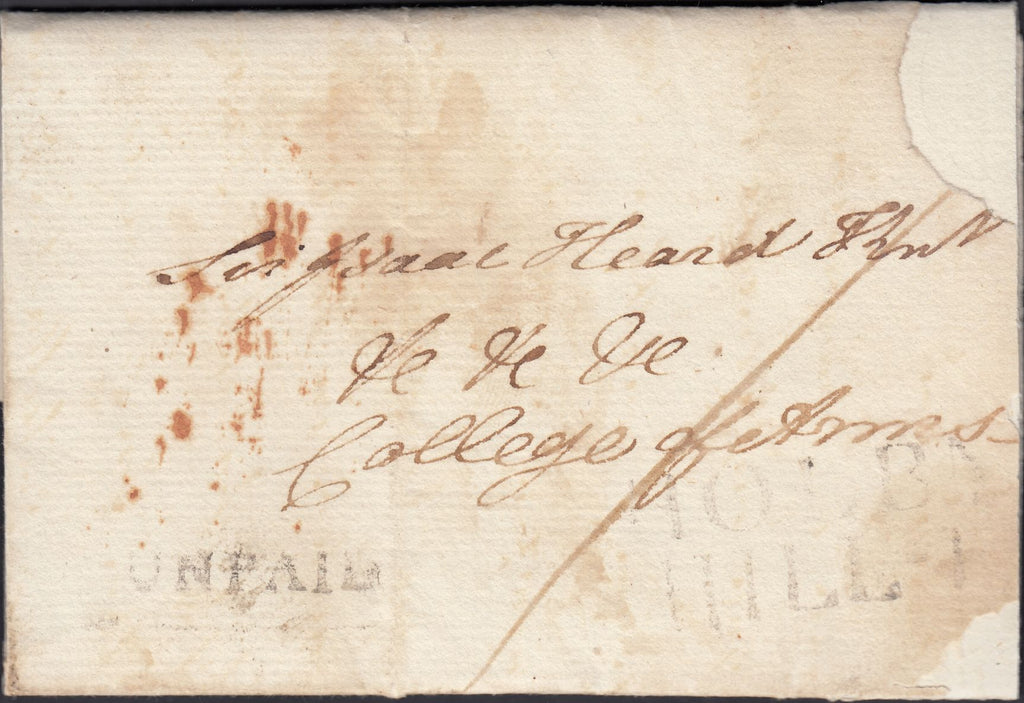 Sir Isaac Heard Knt
&c &c &c
College of Arms
UNPAID
HOLBN
HILL